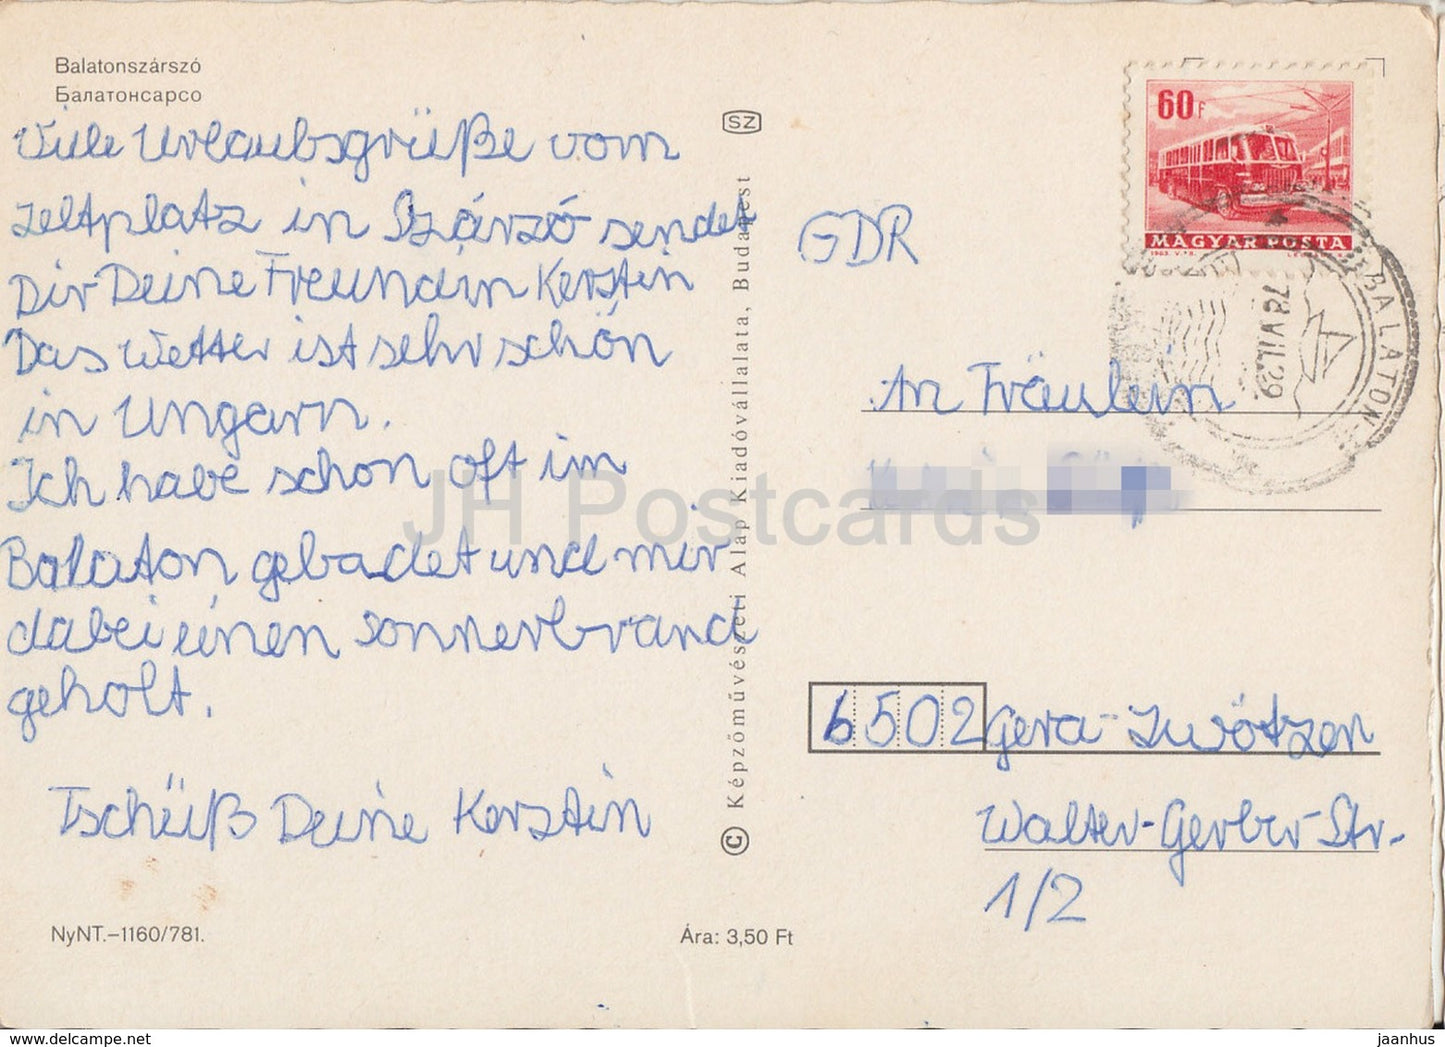 Balatonszárszó
Балатонсарсо
Viele Urlaubsgrüße vom
Zeltplatz in Szárzó sendet
Dir Deine Freundin Kerstin
Das Wetter ist sehr schön
in Ungarn.
Ich habe schon oft im
Balaton gebadet und mir
dabei einen sonnenbrand
geholt.
Tschüß Deine Kerstin
NyNT.–1160/781.
Ára: 3,50 Ft
SZ
© Képzőművészeti Alap Kiadóvállalata, Budapest
60 f
MAGYAR POSTA
BALATON-
78 VII. 29
GDR
An Fräulein
6502 Gera-Zwötzen
Walter-Gerber-Str.
1/2
JH Postcards
www.delcampe.net
jaanhus